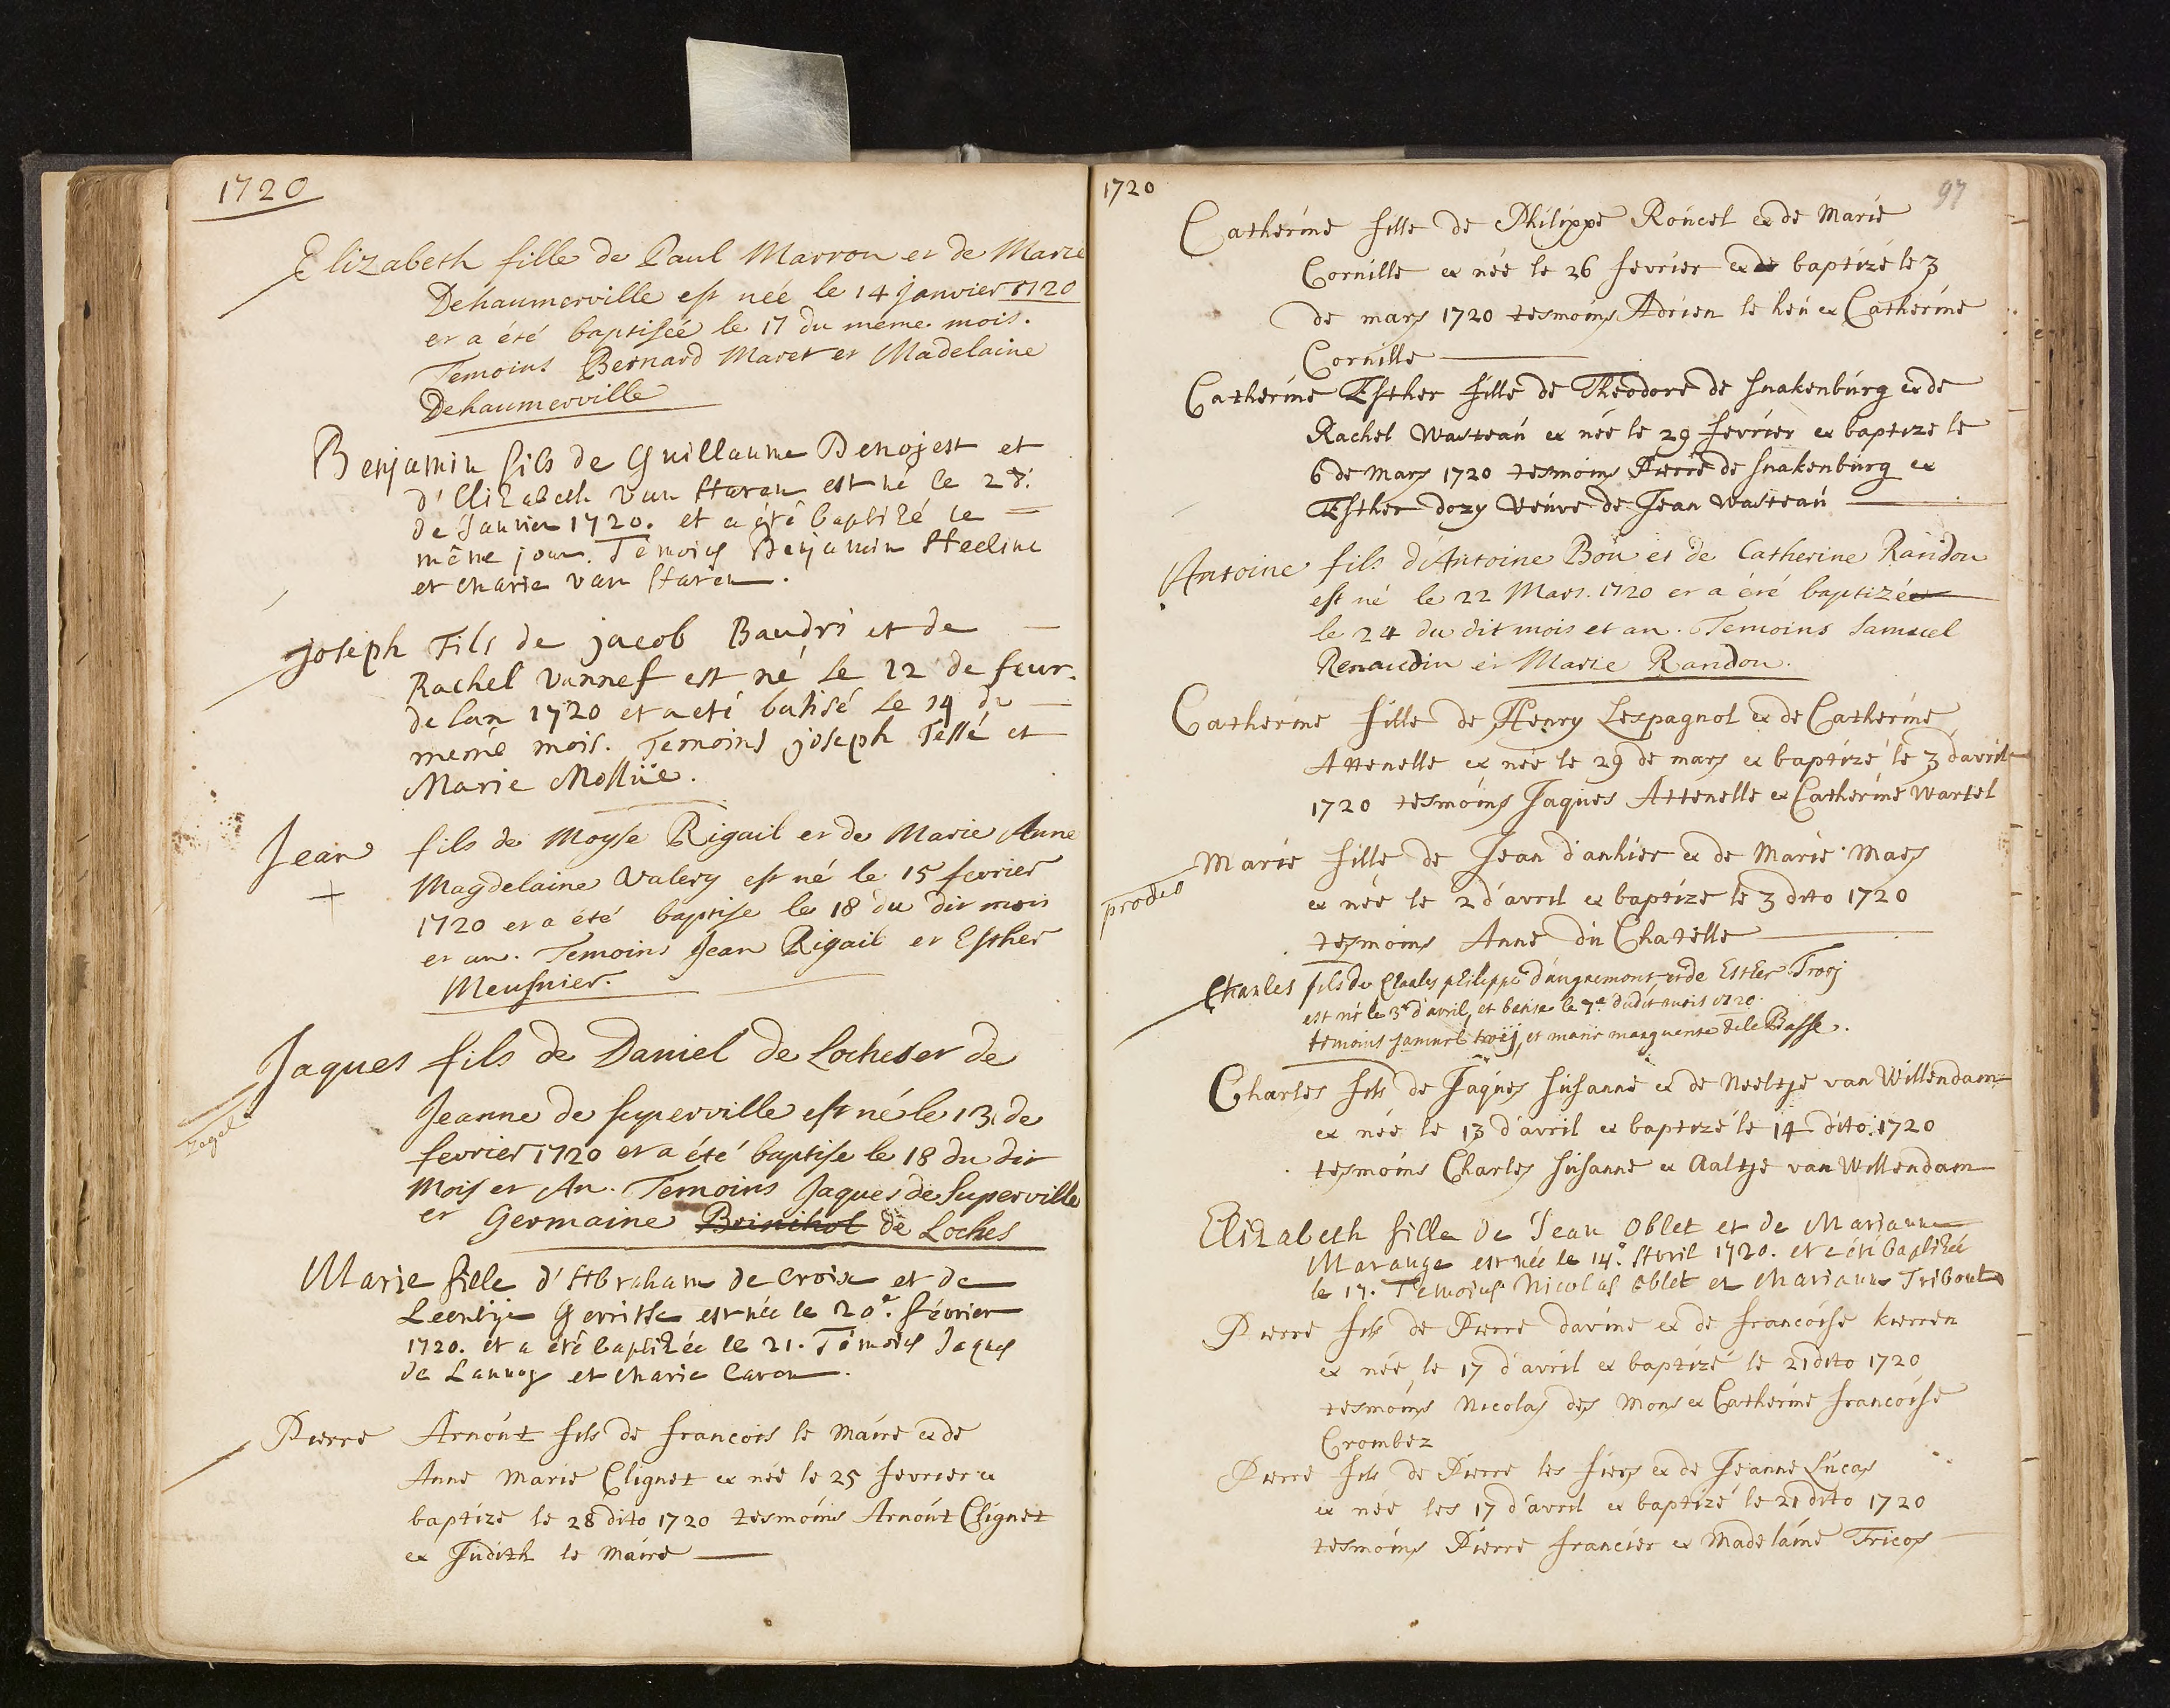 1720
Elizabeth fille de Paul Marron et de Marie
Dehaumerville est née le 14 Janvier 1720
et a été baptisée le 17 du même mois.
Temoins Bernard Maret et Madelaine
Dehaumerville
Benjamin fils de Guillaume Denojest et
d'Elizabeth van Staren est né le 28.
de Janvier 1720. et a été baptizé le
même jour. Témoins Benjamin Steeline
et Marie van Staren.
Joseph Fils de jacob Baudri et de
Rachel Vannef est né le 12 de feur.
de lan 1720 et a eté batisé le 14 du
meme mois. Temoins joseph Tessé et
Marie Mollüe.
Jean fils de Moyse Rigail et de Marie Anne
Magdelaine Valery est né le 15 fevrier
1720 et a été baptise le 18 du dit mois
et an. Temoins Jean Rigail et Esther
Meusnier.
Jaques fils de Daniel de Loches et de
Zegel
Jeanne de Superville est né le 13 de
fevrier 1720 et a été baptise le 18 du dit
Mois et An. Temoins Jaques de Superville
et Germaine de Loches
Marie fille d'Abraham de Croix et de
Leentje Gerritse est née le 20e. Février
1720. et a été baptizée le 21. Témoins Jaques
de Lannoy et Marie Caron.
Pierre Arnoút fils de francois le Maire & de
Anne Marie Clignet & née le 25 fevrier &
baptize le 28 dito 1720 tesmoins Arnoút Clignet
& Júdith le Maire
1720
97
Catherine fille de Philippe Roúcel & de Marie
Cornille & née le 26 fevrier & de baptizé le 3
de mars 1720 tesmoins Adrien le heú & Catherine
Cornille
Catherine Esther fille de Theodore de Snakenbúrg & de
Rachel Wasteaú & née le 29 fevrier & baptize le
6 de Mars 1720 tesmoins Pierre de Snakenbúrg &
Esther dozy veúve de Jean Wasteaú
Antoine fils d'Antoine Boú et de Catherine Randon
est né le 22 Mars. 1720 et a été baptizée
le 24 du dit mois et an. Temoins Samuel
Renaudin et Marie Randon.
Catherine fille de Henry Lespagnol & de Catherine
Attenelle & née le 29 de mars & baptizé le 3 d'avril
1720 tesmoins Jaqúes Attenelle & Catherine Wartel
Marie fille de Jean d'anhier & de Marie Maes
prodeo
& née le 2 d'avril & baptize le 3 dito 1720
tesmoins Anne dú Chatelle
Charles fils de Charles philippe d'augnemont et de Esther Trooj
est né le 3e d'avril, et batise le 7e dudit mois 1720.
temoins samuel trooij, et marie marguerite de le Basse.
Charles fils de Jaqúes Súsanne & de Neeltje van Willendam
& née le 13 d'avril & baptizé le 14 dito 1720
tesmoins Charles Súsanne & Aaltje van Willendam
Elizabeth fille de Jean Oblet et de Marianne
Marange est née le 14e. Avril 1720. et a été baptizée
le 17. Témoins Nicolas Oblet et Marianne Tribout
Pierre fils de Pierre davine & de francoise kierren
& née le 17 d'avril & baptizé le 21 dito 1720
tesmoins Nicolas des Mons & Catherine francoise
Crombez
Pierre fils de Pierre les fiers & de Jeanne Lúcas
& née les 17 d'avril & baptizé le 21 dito 1720
tesmoins Pierre francier & Madelaine Tricos